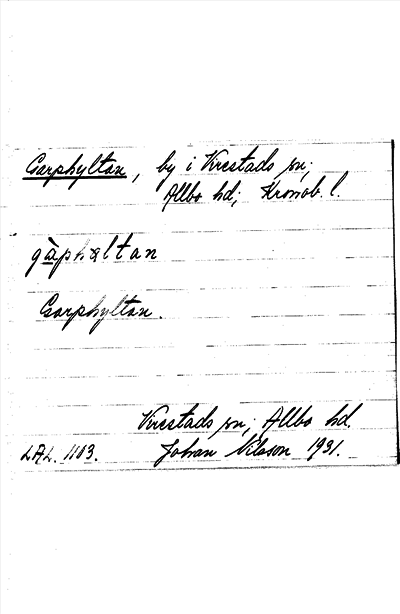 Garphyltan, by i Virestads sn;
Allbo hd; Kronob. l.
gàphltan
Garphyltan.
Virestads sn; Allbo hd.
LAL. 1103. Johan Nilsson 1931.